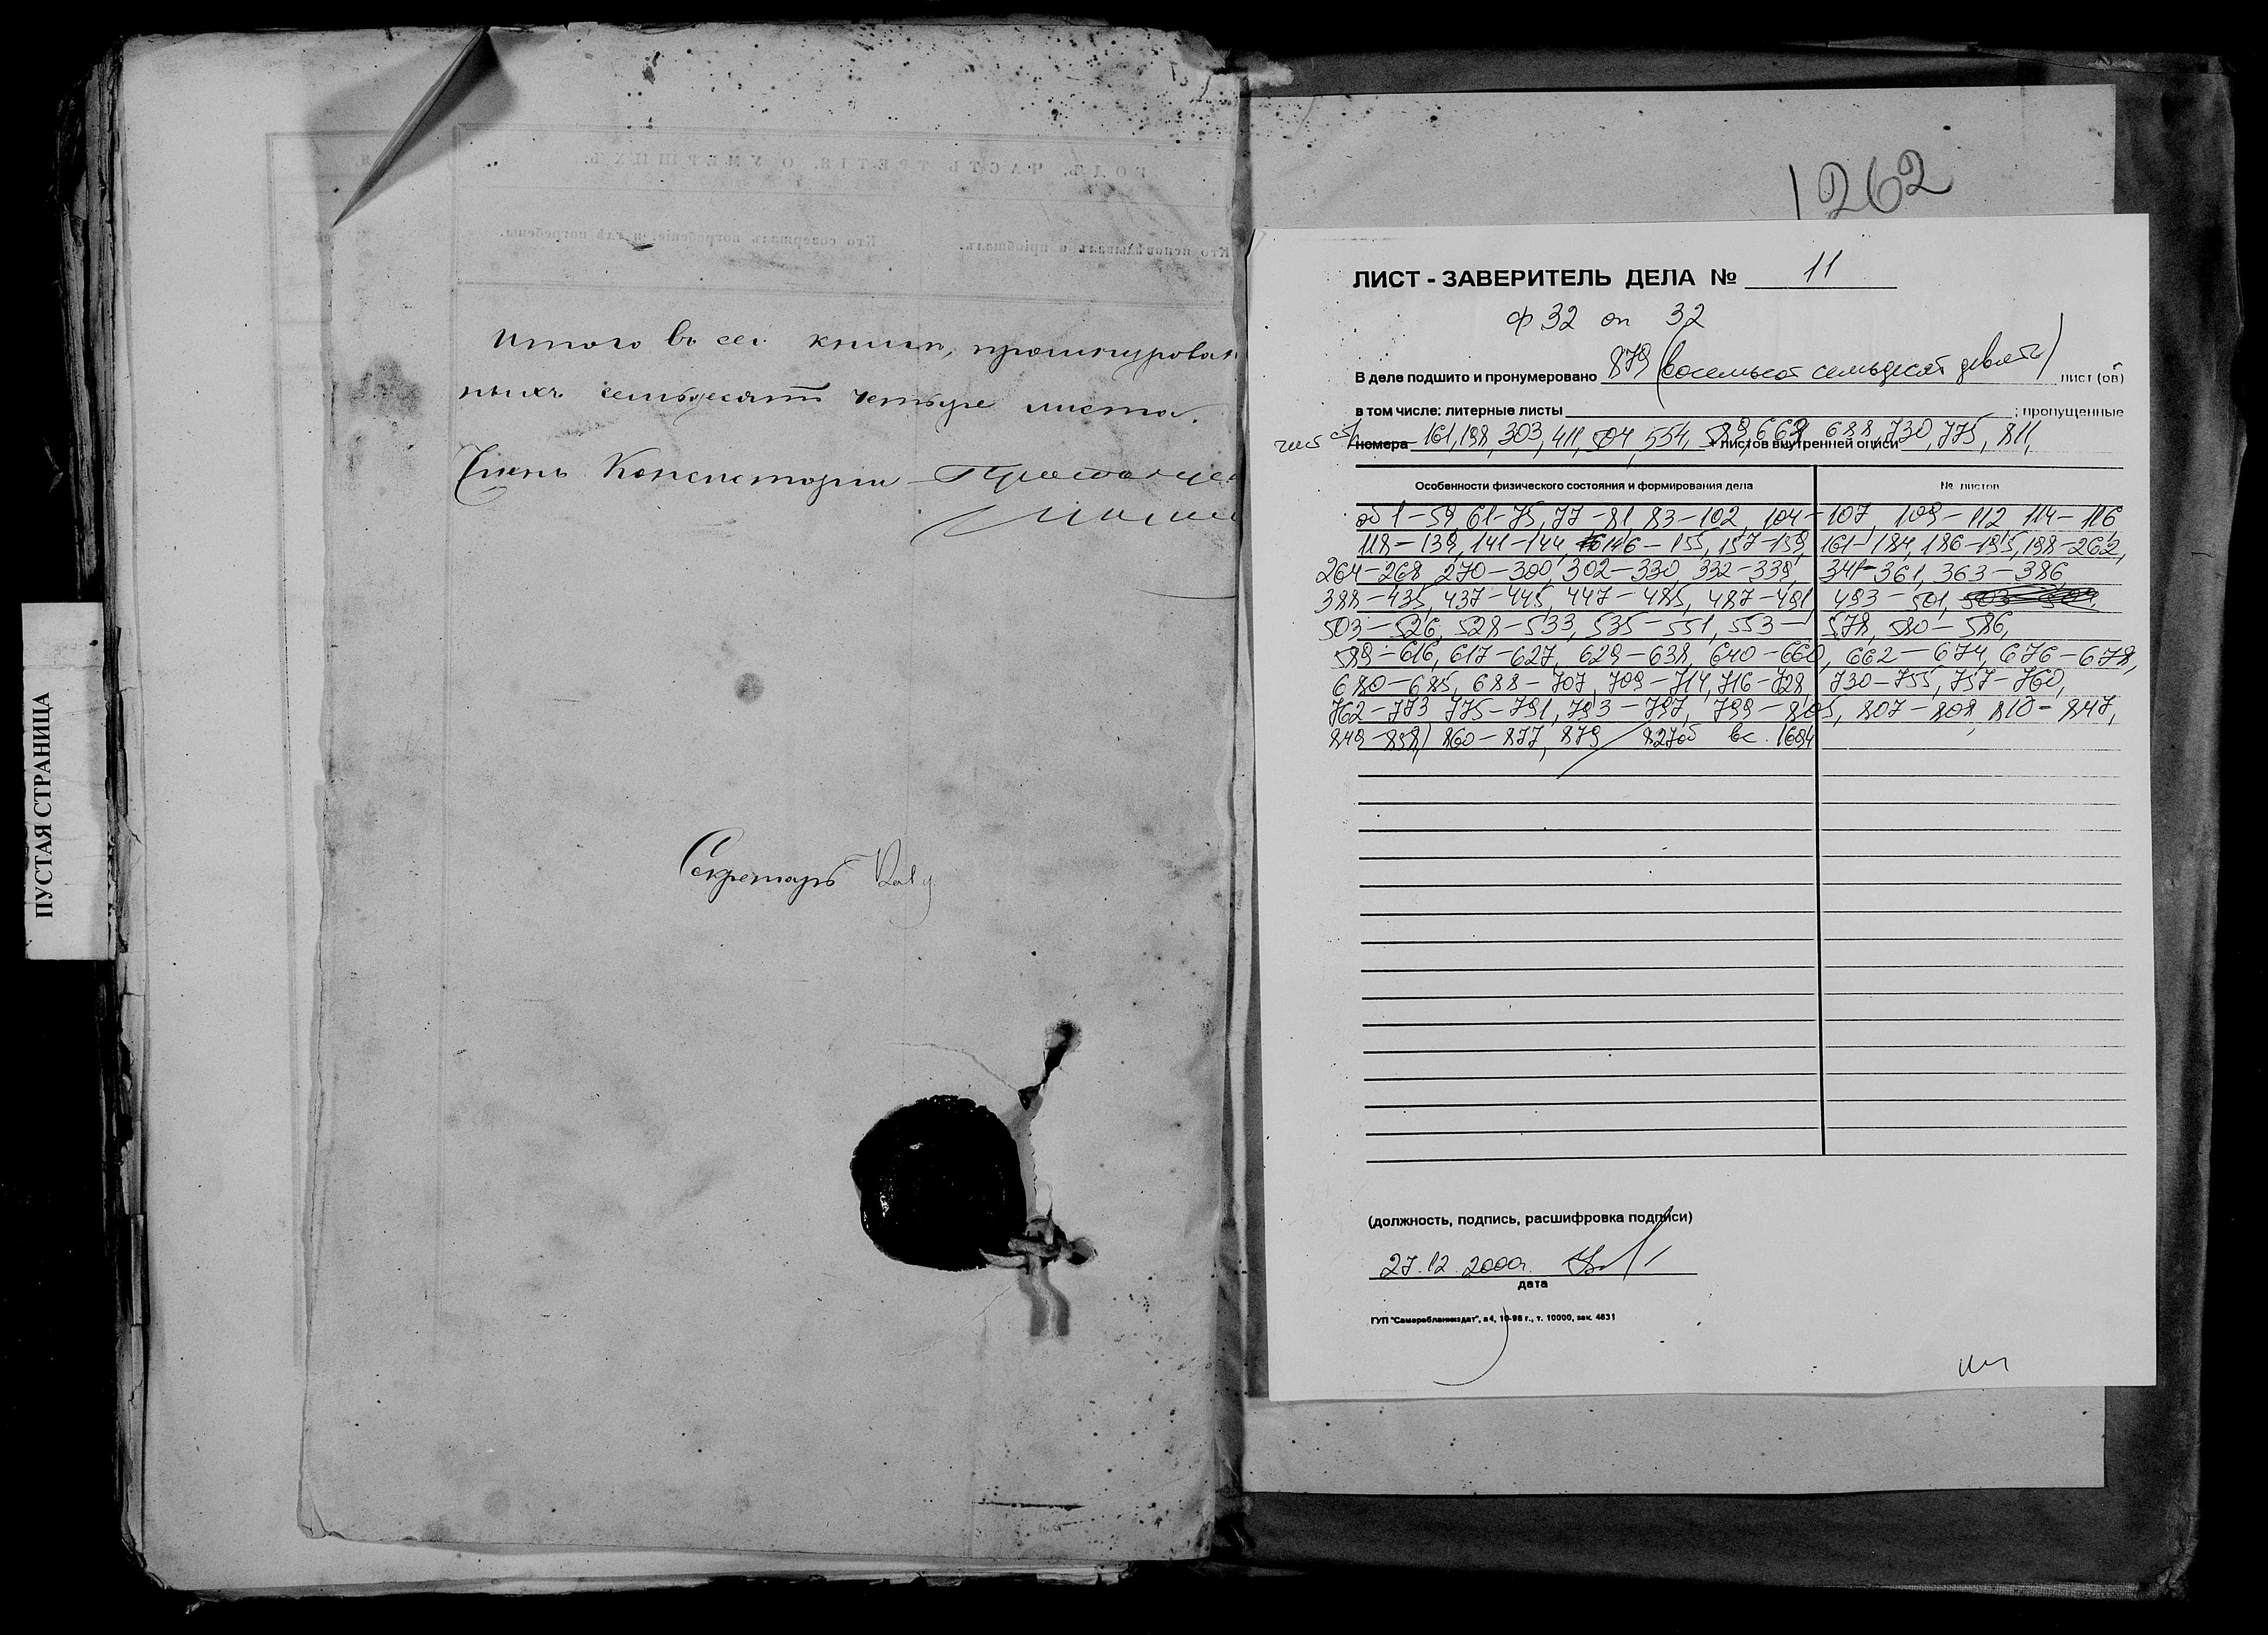 ПУСТАЯ СТРАНИЦА
ГОДЪ. ЧАСТЬ ТРЕТІЯ. О УМЕРШИХЪ.
Кто исповѣдывалъ и пріобщалъ.
Кто совершалъ погребеніе, и гдѣ погребены.
Итого въ сей книги, прошнурован
ныхъ семьдесятъ четыре листа.
Членъ Консисторіи
Секретарь
1262
ЛИСТ - ЗАВЕРИТЕЛЬ ДЕЛА № 11
ф 32 оп 32
В деле подшито и пронумеровано 879 (восемьсот семьдесят девять) лист (ов)
в том числе: литерные листы ; пропущенные
номера 161, 198, 303, 411, 504, 554, 589, 662, 688, 730, 775, 811,
+ листов внутренней описи
Особенности физического состояния и формирования дела
№ листов
об 1-59, 61-75, 77-81, 83-102, 104-107, 109-112, 114-116
118-139, 141-144, 146-155, 157-159, 161-184, 186-195, 198-262,
264-268, 270-300, 302-330, 332-339, 341-361, 363-386,
388-435, 437-445, 447-485, 487-491, 493-501,
503-526, 528-533, 535-551, 553-578, 580-586,
589-616, 617-627, 629-638, 640-660, 662-674, 676-678,
680-685, 688-707, 709-714, 716-728, 730-755, 757-760,
762-773, 775-791, 793-797, 799-805, 807-808, 810-847,
849-858, 860-877, 879 827об вс. 1694
(должность, подпись, расшифровка подписи)
27.12.2000г.
дата
ГУП "Самарабланкиздат", а4, 10-98 г., т. 10000, зак. 4831